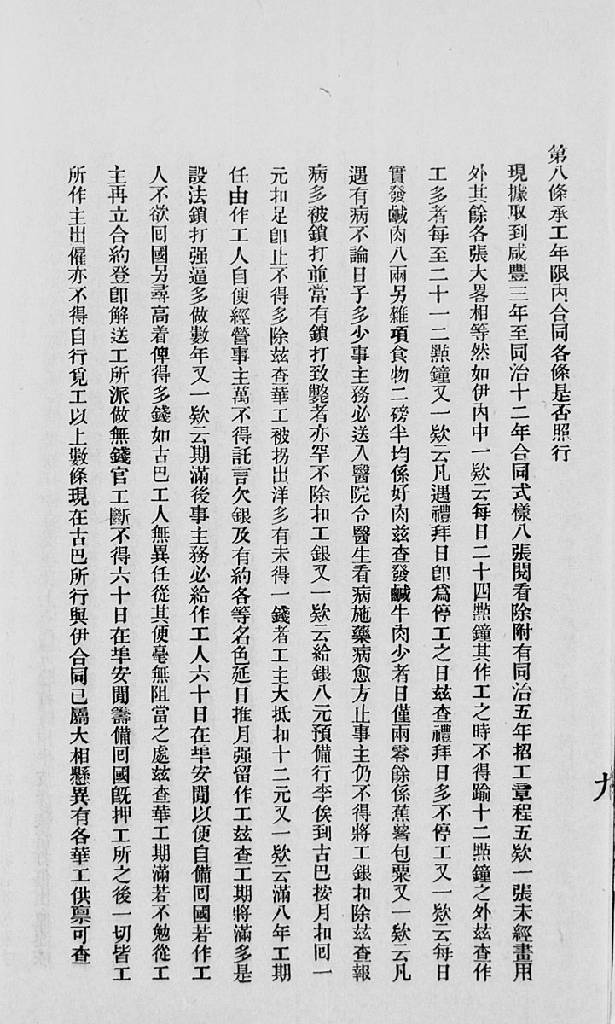 第八條承工年限內合同各條是否照行
現據取到咸豐三年至同治十二年合同式樣八張閱看除附有同治五年招工章程五欵一張未經畫用
外其餘各張大畧相等然如伊內中一欵云每日二十四㸃鐘其作工之時不得踰十二㸃鐘之外茲查作
工多者每至二十一二㸃鐘又一欵云凡遇禮拜日卽爲停工之日茲查禮拜日多不停工又一欵云每日
實發鹹肉八兩另雜項食物二磅半均係好肉茲查發鹹牛肉少者日僅兩零餘係蕉薯包粟又一欵云凡
遇有病不論日子多少事主務必送入醫院令醫生看病施藥病愈方止事主仍不得將工銀扣除茲查報
病多被鎖打並常有鎖打致斃者亦罕不除扣工銀又一欵云給銀八元預備行李俟到古巴按月扣囘一
元扣足卽止不得多除茲查華工被拐出洋多有未得一錢者工主大抵扣十二元又一欵云滿八年工期
任由作工人自便經營事主萬不得託言欠銀及有約各等名色延日推月强留作工茲查工期將滿多是
設法鎖打强逼多做數年又一欵云期滿後事主務必給作工人六十日在埠安閒以便自備囘國若作工
人不欲囘國另尋高着俾得多錢如古巴工人無異任從其便毫無阻當之處茲查華工期滿若不勉從工
主再立合約登卽解送工所派做無錢官工斷不得六十日在埠安閒籌備囘國旣押工所之後一切皆工
所作主出僱亦不得自行覓工以上數條現在古巴所行與伊合同已屬大相懸異有各華工供禀可查
九